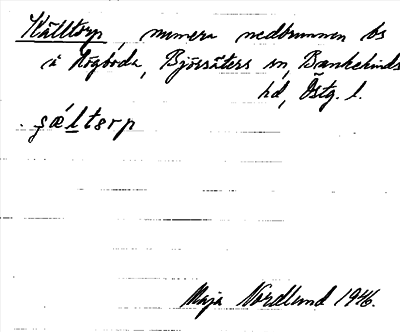 Källtorp, numera nedbrunnen bs
i Högboda, Björsäters sn, Bankekinds
hd, Östg. l.
. ʂǽltɵrp
Maja Nordlund 1946.